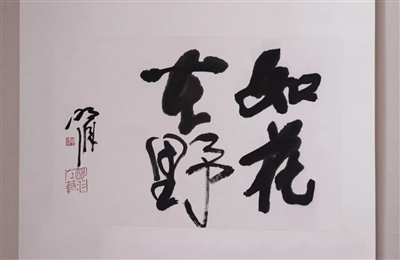 如花
在野